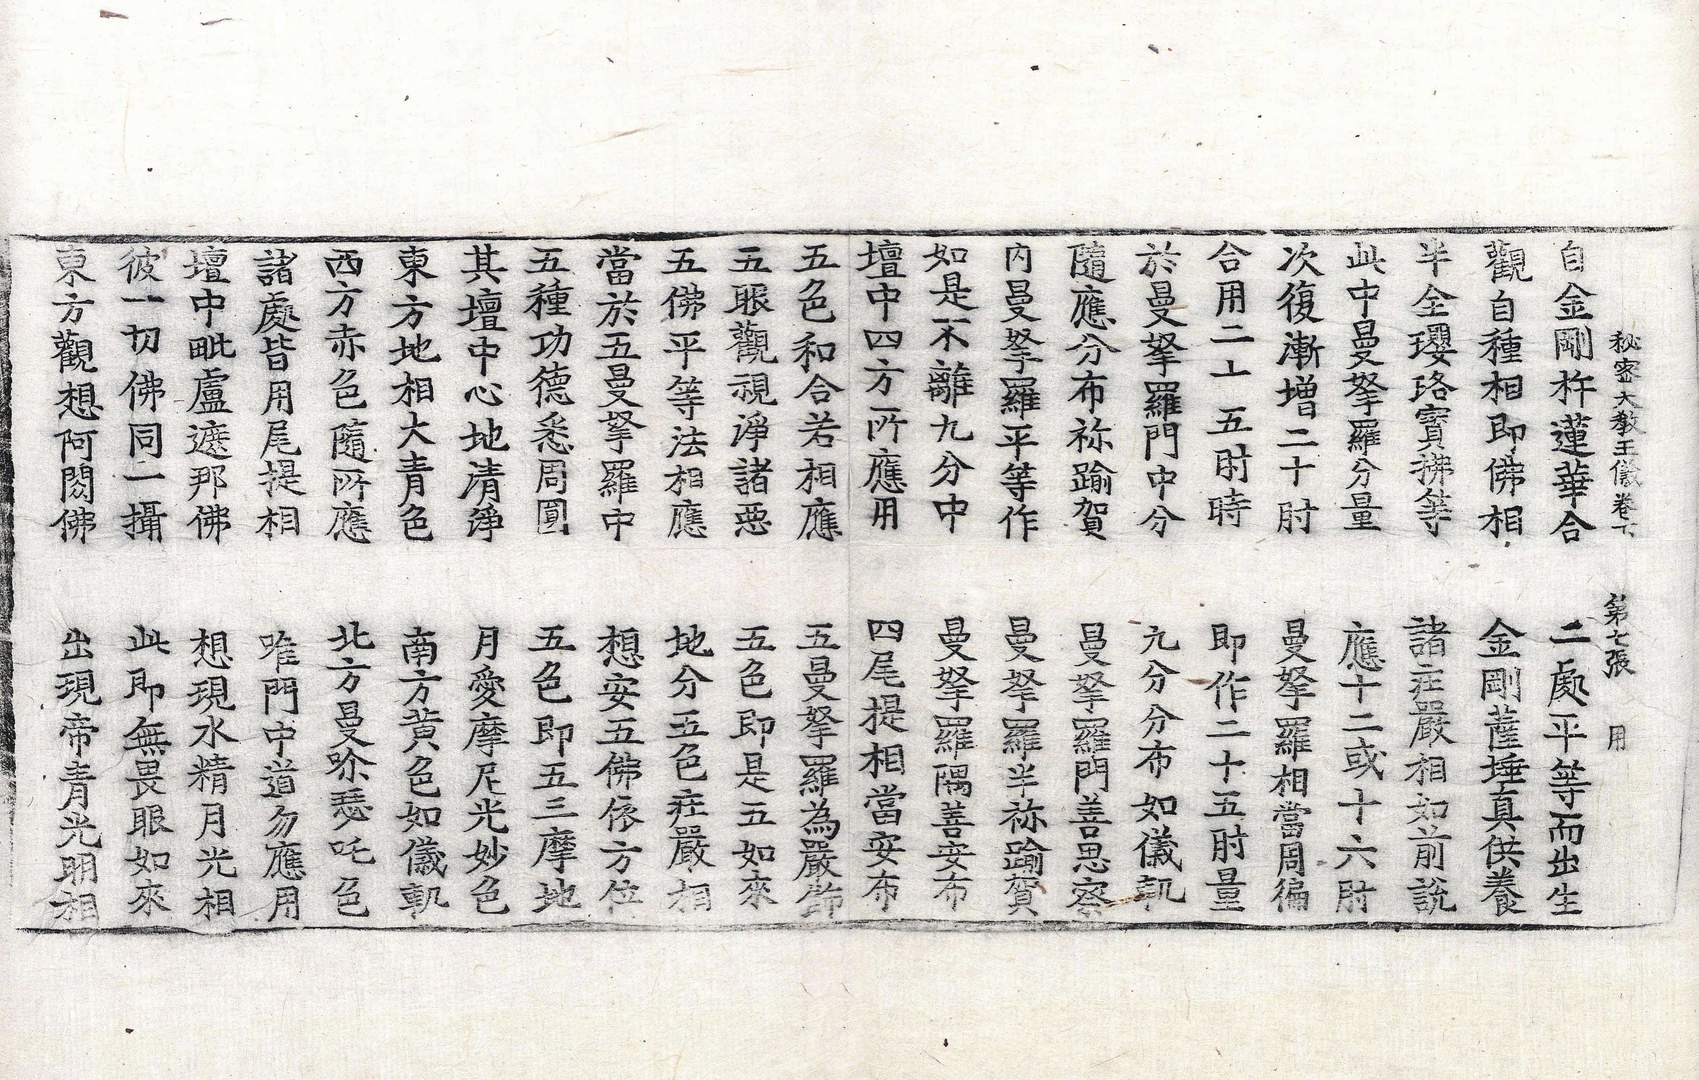 秘密大教王儀卷下 第七張 用
自金剛杵蓮華合 二處平等而出生
觀自種相即佛相 金剛薩埵真供養
半全瓔珞寶拂等 諸莊嚴相如前說
此中曼拏羅分量 應十二或十六肘
次復漸增二十肘 曼拏羅相當周徧
合用二十五肘時 即作二十五肘量
於曼拏羅門中分 九分分布如儀軌
隨應分布祢踰賀 曼拏羅門善思察
內曼拏羅平等作 曼拏羅半祢踰賀
如是不離九分中 曼拏羅隅善安布
壇中四方所應用 四尾提相當安布
五色和合若相應 五曼拏羅為嚴飾
五眼觀視淨諸惡 五色即是五如來
五佛平等法相應 地分五色莊嚴相
當於五曼拏羅中 想安五佛依方位
五種功德悉周圓 五色即五三摩地
其壇中心地清淨 月愛摩尼光妙色
東方地相大青色 南方黃色如儀軌
西方赤色隨所應 北方曼哆瑟吒色
諸處皆用尾提相 唯門中道勿應用
壇中毗盧遮那佛 想現水精月光相
彼一切佛同一攝 此即無畏眼如來
東方觀想阿閦佛 出現帝青光明相